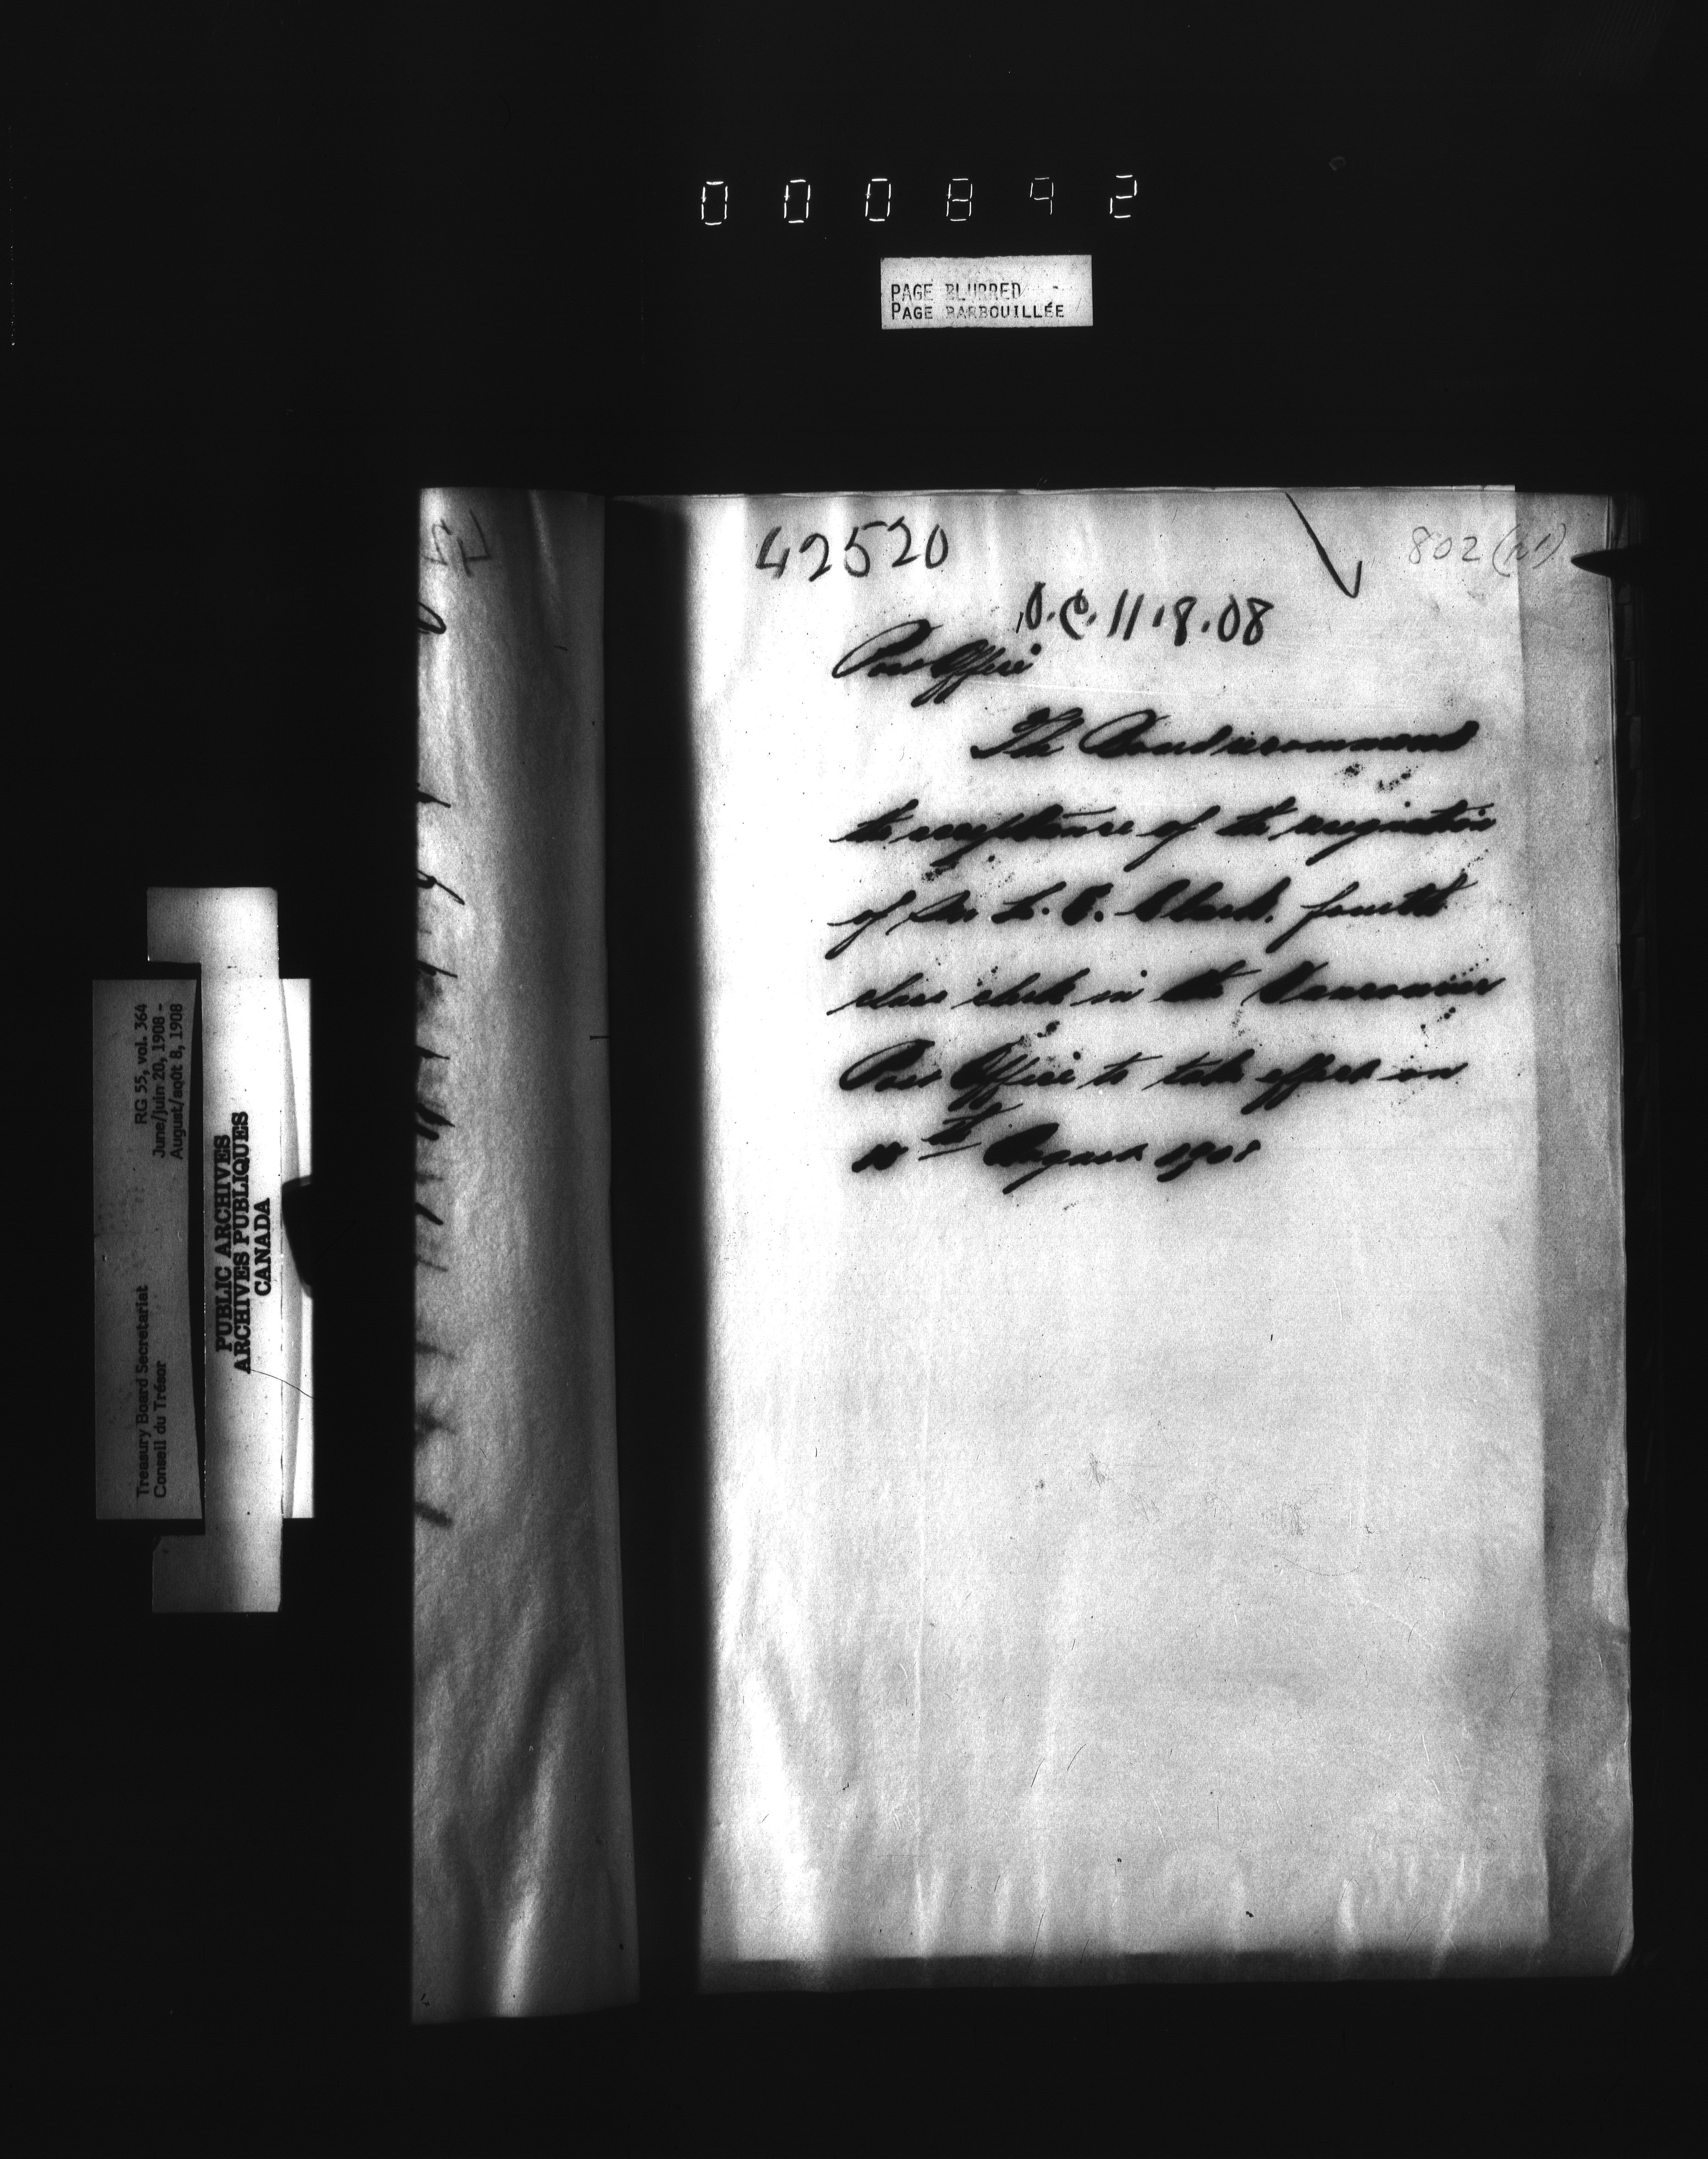 000892
PAGE BLURRED
PAGE BARBOUILLÉE
42520
802
O.C. 11.8.08
Post Office
The Board recommend
the acceptance of the resignation
of Mr L. E. Clark, fourth
class clerk in the Vancouver
Post Office to take effect on
th August 1908
Treasury Board Secretariat
Conseil du Trésor
RG 55, vol. 364
June/juin 20, 1908 -
August/août 8, 1908
PUBLIC ARCHIVES
ARCHIVES PUBLIQUES
CANADA